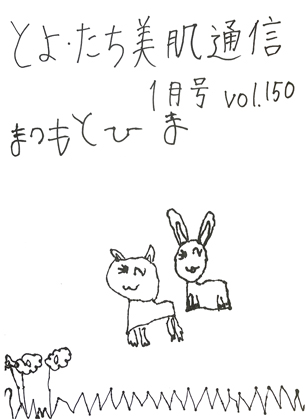 とよ・たち美肌通信
1月号 vol.150
まつもとひ ま